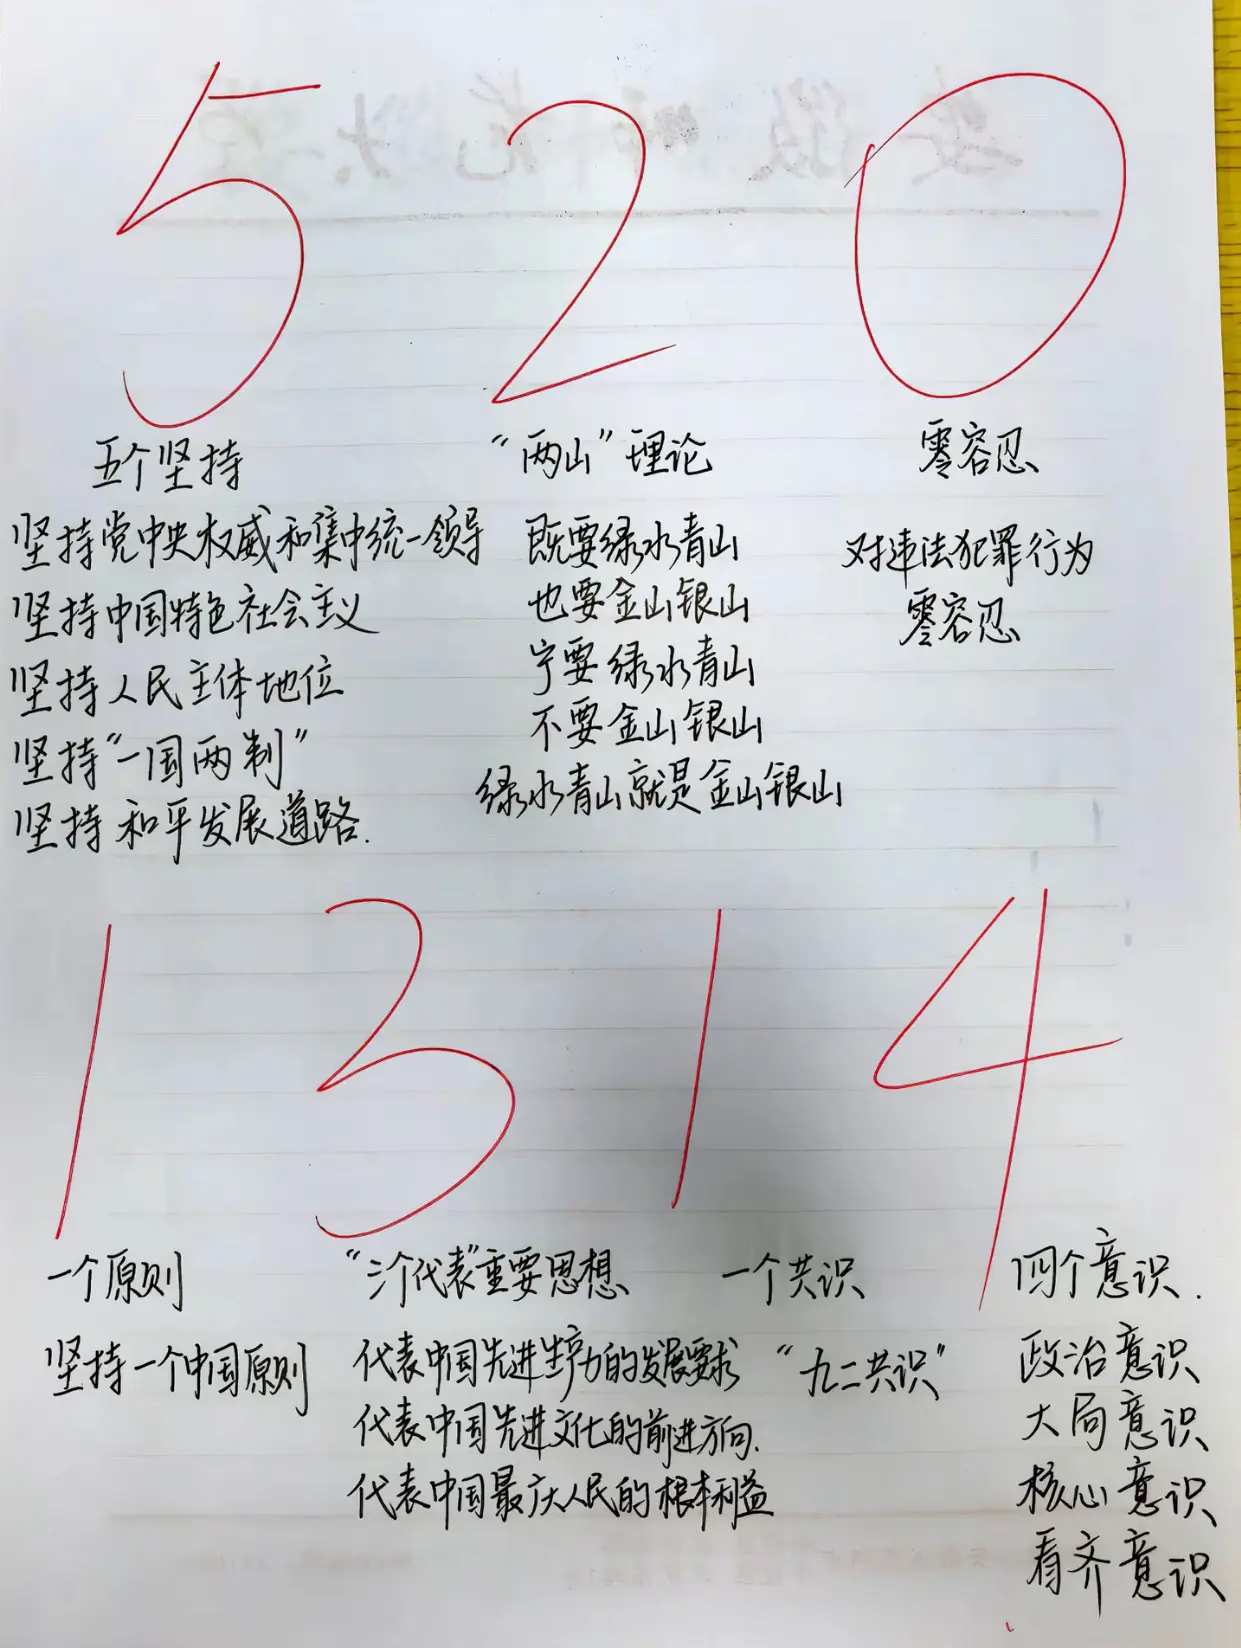 5 2 0
五个坚持
坚持党中央权威和集中统一领导
坚持中国特色社会主义
坚持人民主体地位
坚持“一国两制”
坚持和平发展道路.
“两山”理论
既要绿水青山
也要金山银山
宁要绿水青山
不要金山银山
绿水青山就是金山银山
零容忍
对违法犯罪行为
零容忍
1 3 1 4
一个原则
坚持一个中国原则
“三个代表”重要思想
代表中国先进生产力的发展要求
代表中国先进文化的前进方向.
代表中国最广大人民的根本利益
一个共识
“九二共识”
四个意识.
政治意识
大局意识
核心意识
看齐意识